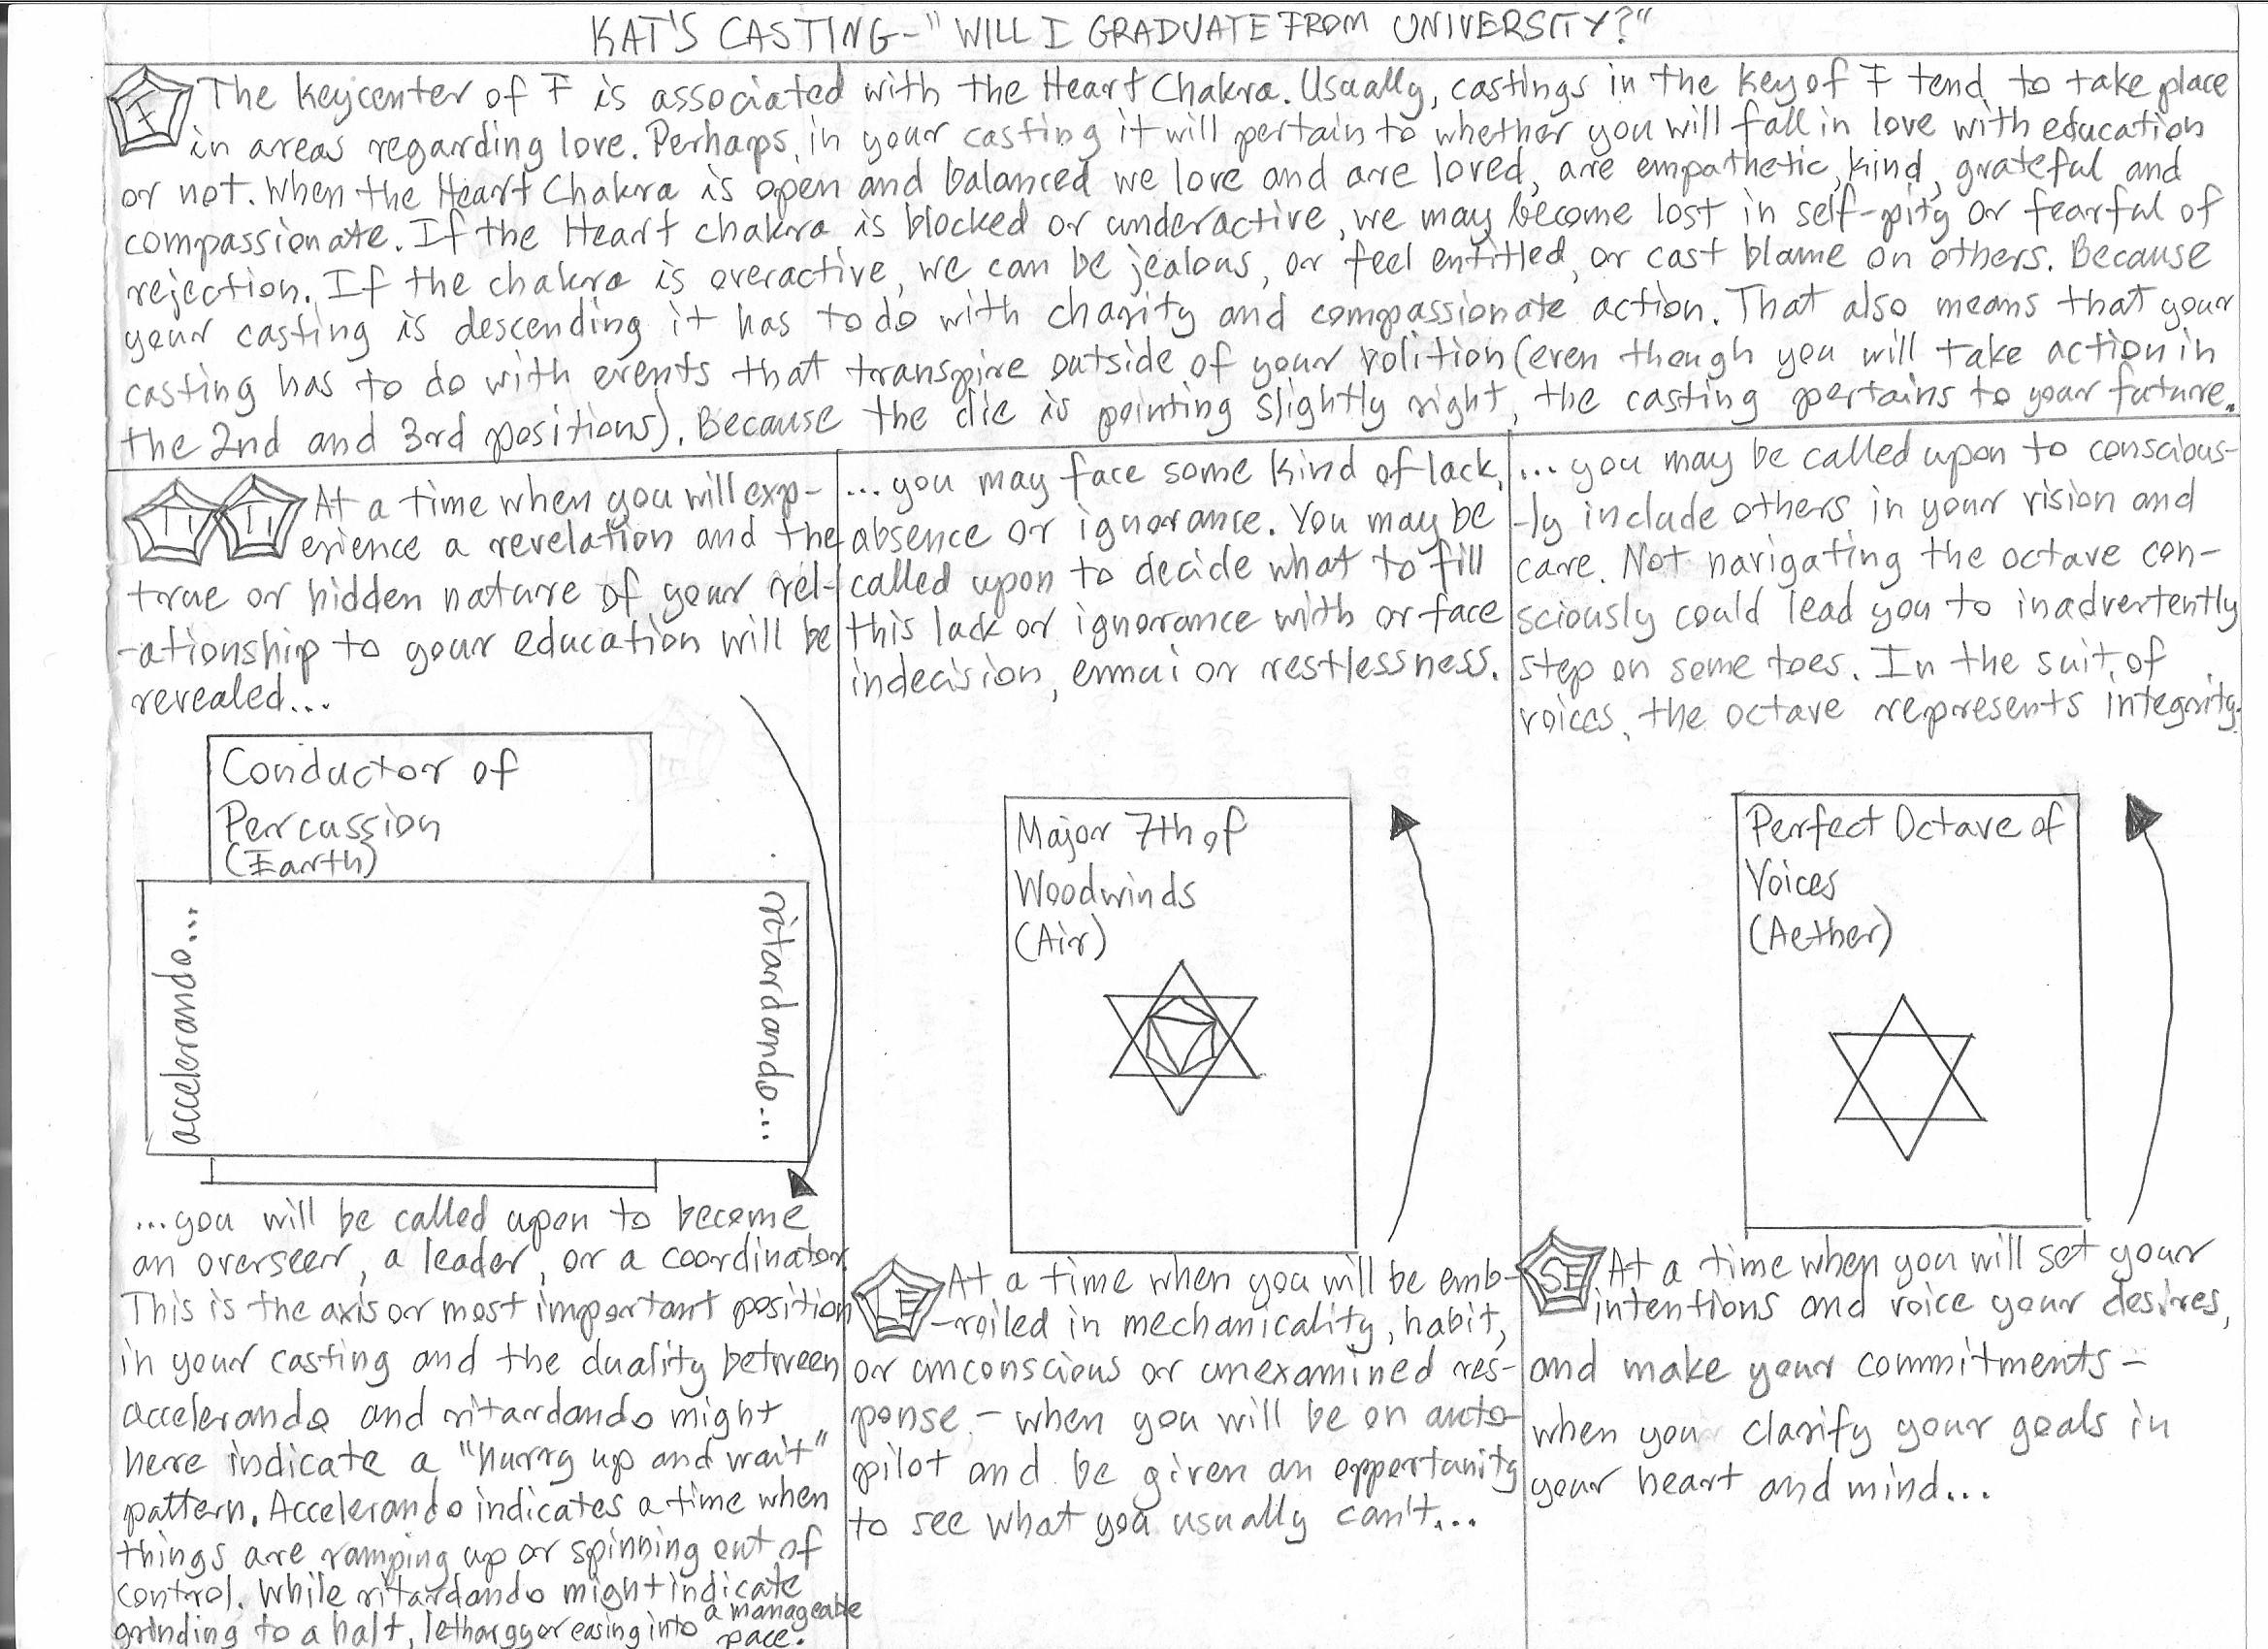 KAT'S CASTING-"WILL I GRADUATE FROM UNIVERSITY?"
F The keycenter of F is associated with the Heart Chakra. Usually, castings in the key of F tend to take place
in areas regarding love. Perhaps, in your casting it will pertain to whether you will fall in love with education
or not. When the Heart Chakra is open and balanced we love and are loved, are empathetic, kind, grateful and
compassionate. If the Heart chakra is blocked or underactive, we may become lost in self-pity or fearful of
rejection. If the chakra is overactive, we can be jealous, or feel entitled, or cast blame on others. Because
your casting is descending it has to do with charity and compassionate action. That also means that your
casting has to do with events that transpire outside of your volition (even though you will take action in
the 2nd and 3rd positions). Because the die is pointing slightly right, the casting pertains to your future.
TI TI At a time when you will exp-
erience a revelation and the
true or hidden nature of your rel-
-ationship to your education will be
revealed...
Conductor of
Percussion
(Earth)
accelerando...
ritardando...
...you will be called upon to become
an overseer, a leader, or a coordinator
This is the axis or most important position
in your casting and the duality between
accelerando and ritardando might
here indicate a "hurry up and wait"
pattern. Accelerando indicates a time when
things are ramping up or spinning out of
control. While ritardando might indicate
grinding to a halt, lethargy or easing into a manageable
pace.
...you may face some kind of lack,
absence or ignorance. You may be
called upon to decide what to fill
this lack or ignorance with or face
indecision, ennui or restlessness.
Major 7th of
Woodwinds
(Air)
LE At a time when you will be emb-
-roiled in mechanicality, habit,
or unconscious or unexamined res-
ponse - when you will be on auto-
pilot and be given an opportunity
to see what you usually can't...
...you may be called upon to conscious-
-ly include others in your vision and
care. Not navigating the octave con-
sciously could lead you to inadvertently
step on some toes. In the suit of
voices, the octave represents integrity.
Perfect Octave of
Voices
(Aether)
SE At a time when you will set your
intentions and voice your desires,
and make your commitments -
when you clarify your goals in
your heart and mind...